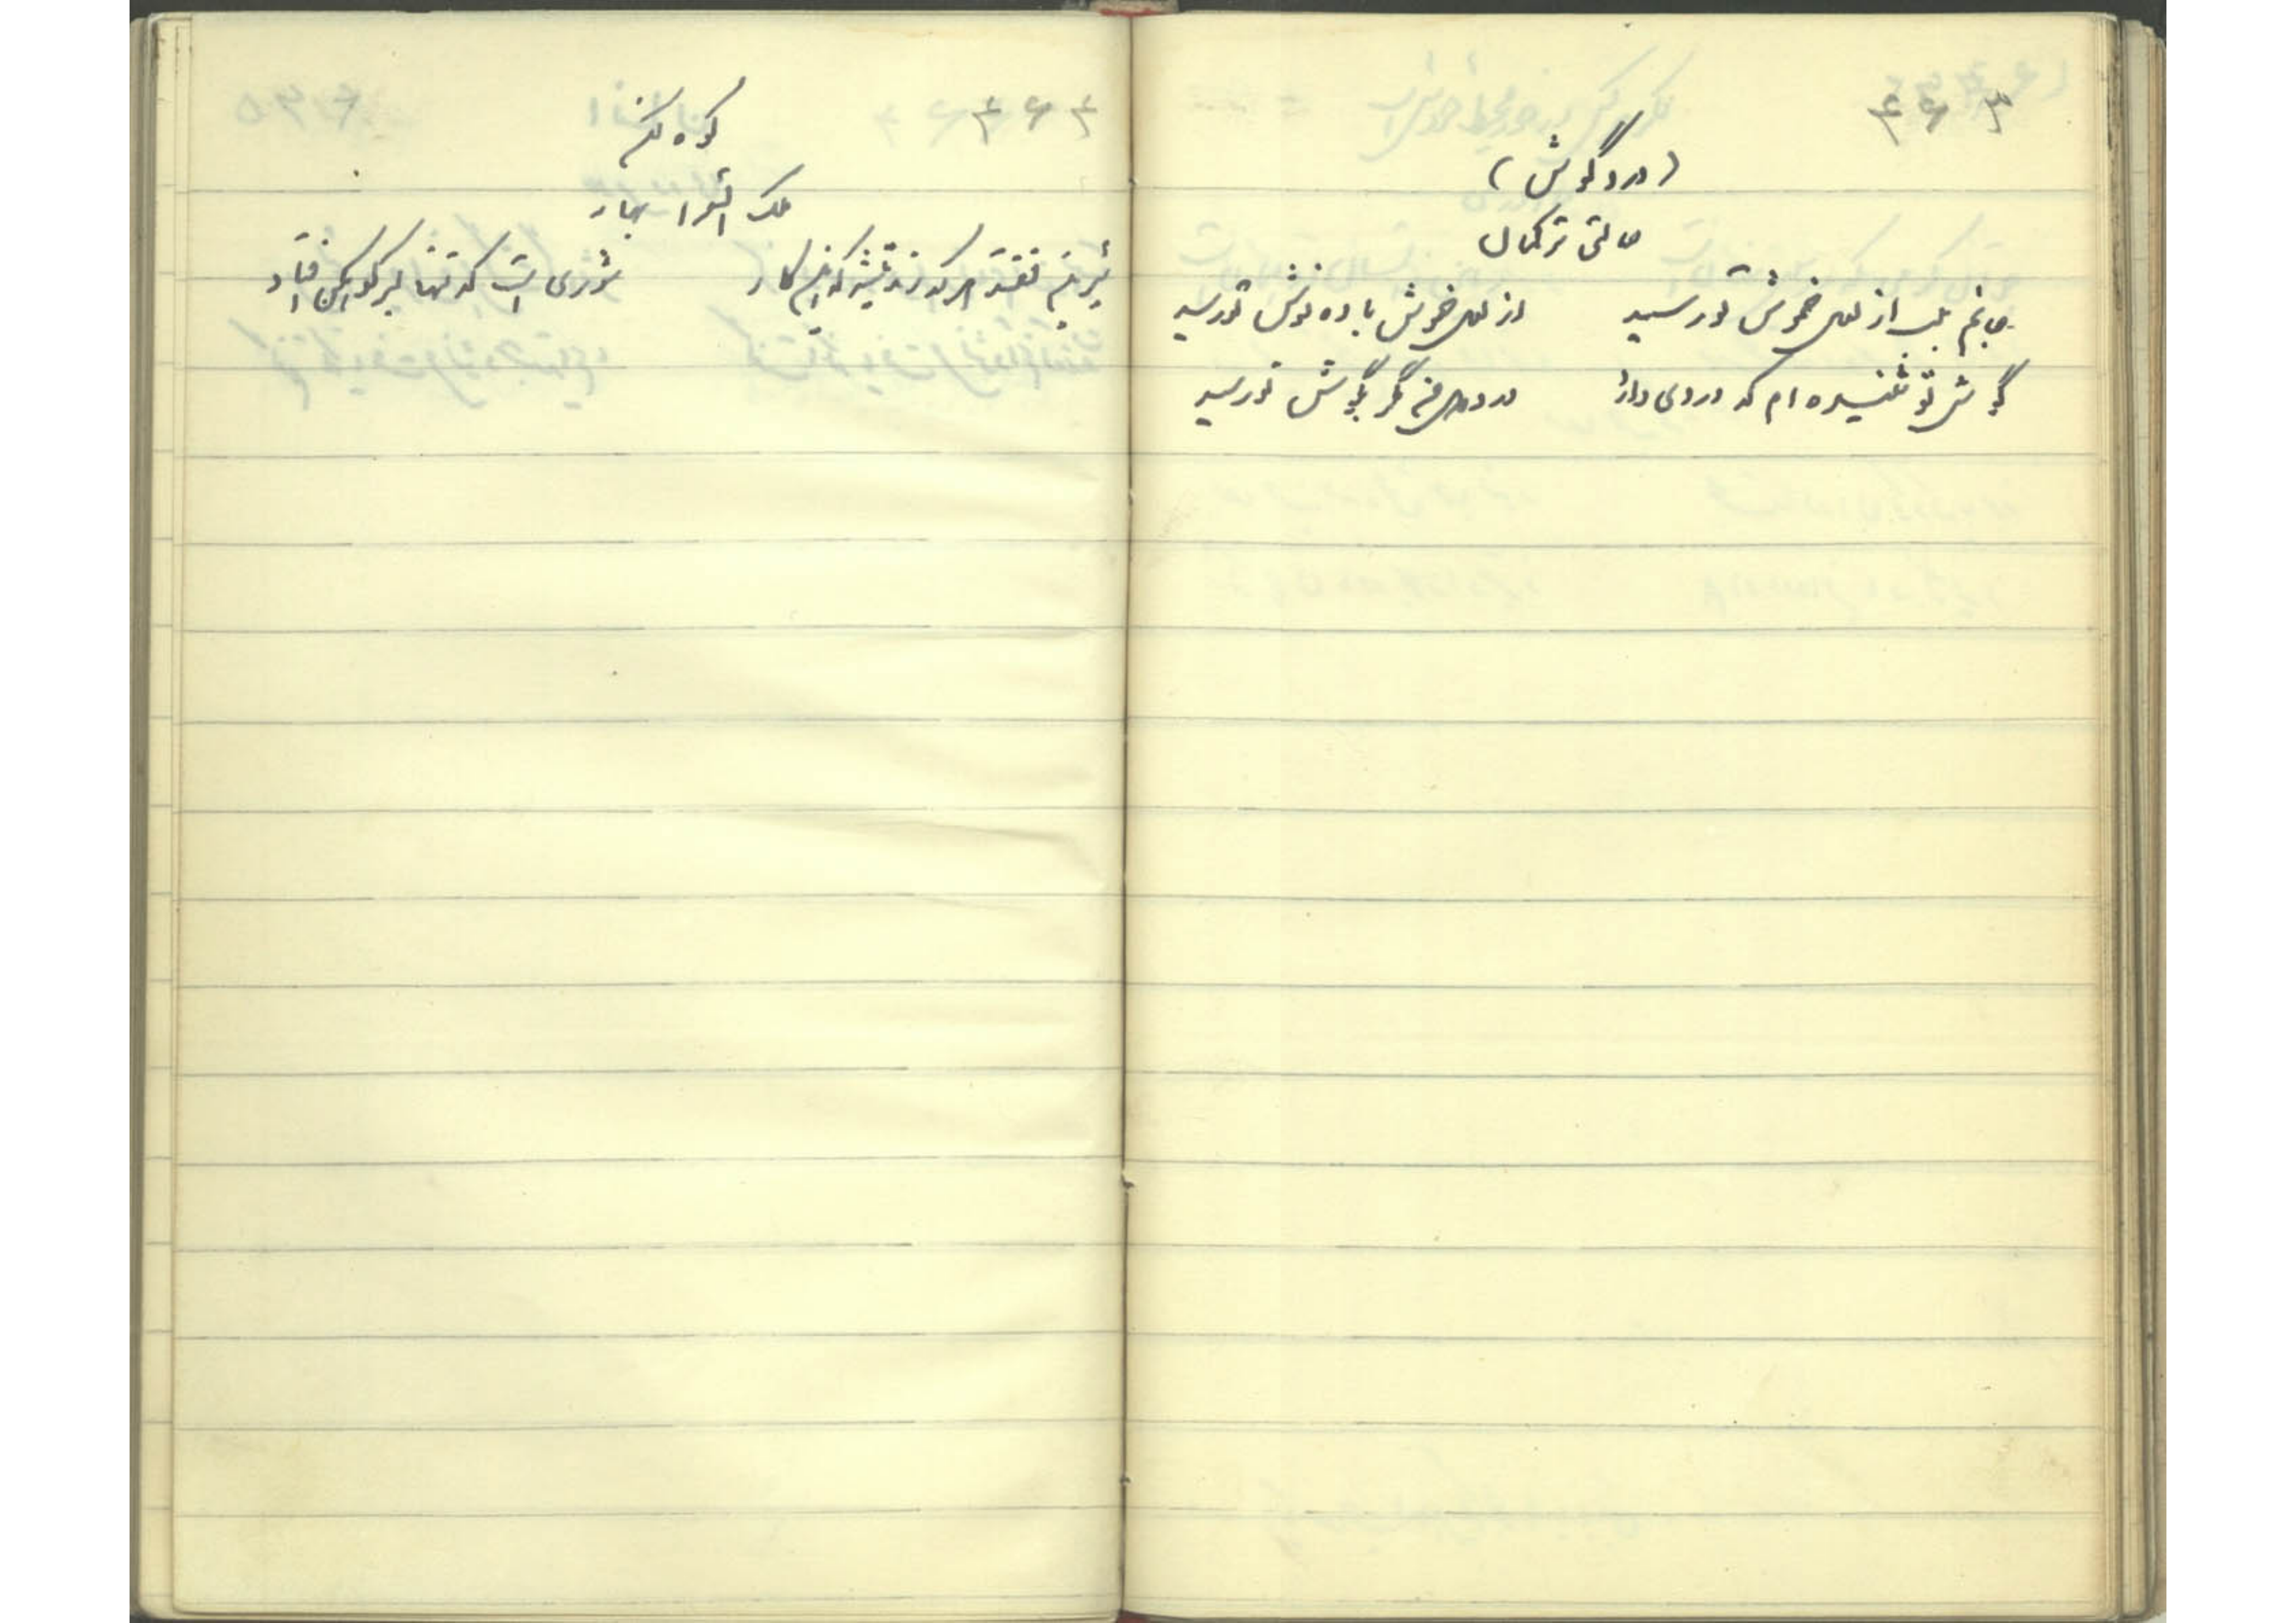 ۴۶۳
(درد گوش)
حالتی ترکمان
جانم بلب از لعل خموش تو رسید
از لعل خموش باده نوش تو رسید
گوش تو شنیده ام که دردی دارد
درد دل من مگر بگوش تو رسید
۴۶۴
کوه کن
ملک الشعرا بهار
شیرینی نفتد هر که زند تیشه که این کار
شوری است که تنها بسر کوهکن افتاد